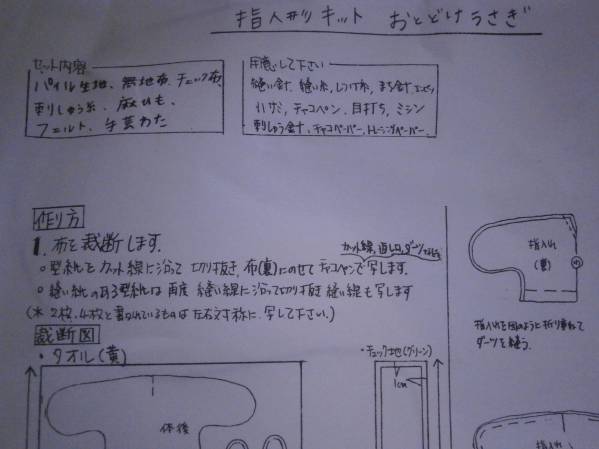 指人形キット おとどけうさぎ
セット内容
パイル生地、無地布、チェック布、
刺しゅう糸、麻ひも、
フェルト、手芸わた
用意して下さい
縫い針、縫い糸、しつけ糸、まち針、エンピツ
ハサミ、チャコペン、目打ち、ミシン
刺しゅう針、チャコペーパー、トレーシングペーパー
作り方
1. 布を裁断します。
カット線、直し口、ダーツ
○型紙をカット線に沿って切り抜き、布(裏)にのせてチャコペンで写します。
○縫い線のある型紙は再度縫い線に沿って切抜き縫い線も写します
(※2枚、4枚と書かれているものは左右対称に写して下さい。)
裁断図
・タオル(黄)
体後
・チェック生地(グリーン)
1cm
指入れ
(裏)
指入れを図のように折り重ねて
ダーツを縫う。
指入れ